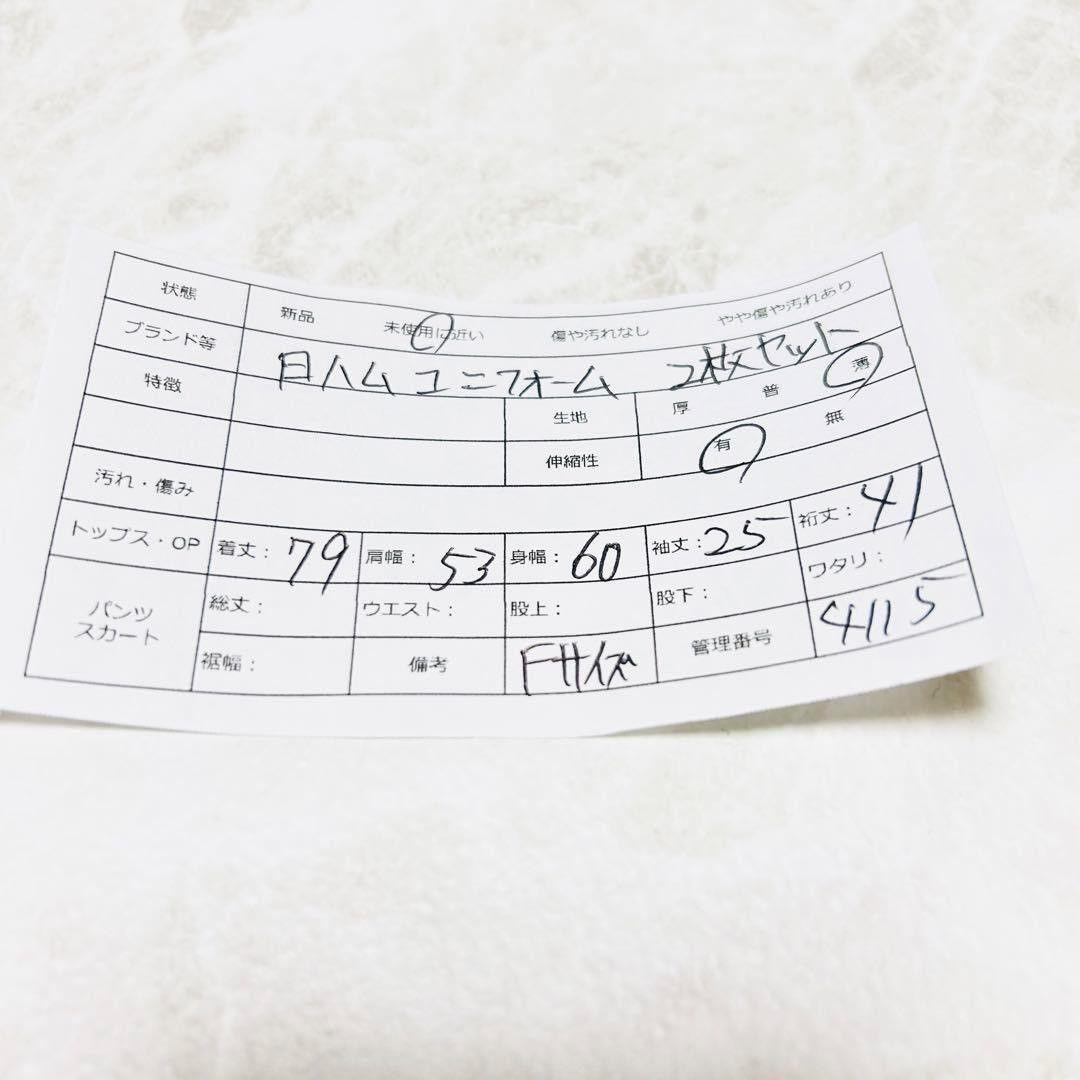 状態 新品 未使用に近い 傷や汚れなし やや傷や汚れあり
ブランド等 日ハムユニフォーム 2枚セット
特徴 生地 厚 普 薄
伸縮性 有 無
汚れ・傷み
トップス・OP 着丈: 79 肩幅: 53 身幅: 60 袖丈: 25 裄丈: 41
パンツ スカート 総丈: ウエスト: 股上: 股下: ワタリ:
裾幅: 備考 Fサイズ 管理番号 4115